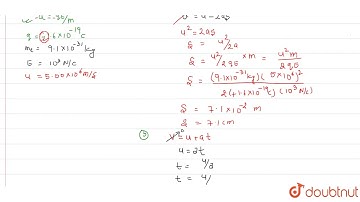 u = .3t/m
q = 1.6×10⁻¹⁹ c
mₑ = 9.1×10⁻³¹ kg
E = 10³ N/c
u = 5.00×10⁶ m/s
u² = 2as
S = u²/2a
S = u²/2qε × m = u²m/2qε
S = (9.1×10⁻³¹)(5×10⁶)²/2(1.6×10⁻¹⁹)(10³ N/c)
S = 7.1×10⁻² m
S = 7.1 cm
② V = u + at
u = at
t = u/a
t = u/
doubtnut